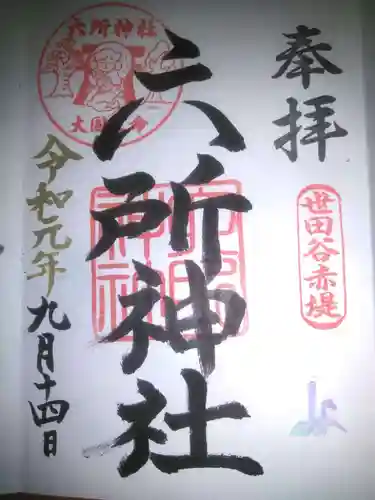 奉拝
世田谷赤堤
六所神社
六所神社
六所神社
令和元年
九月十四日